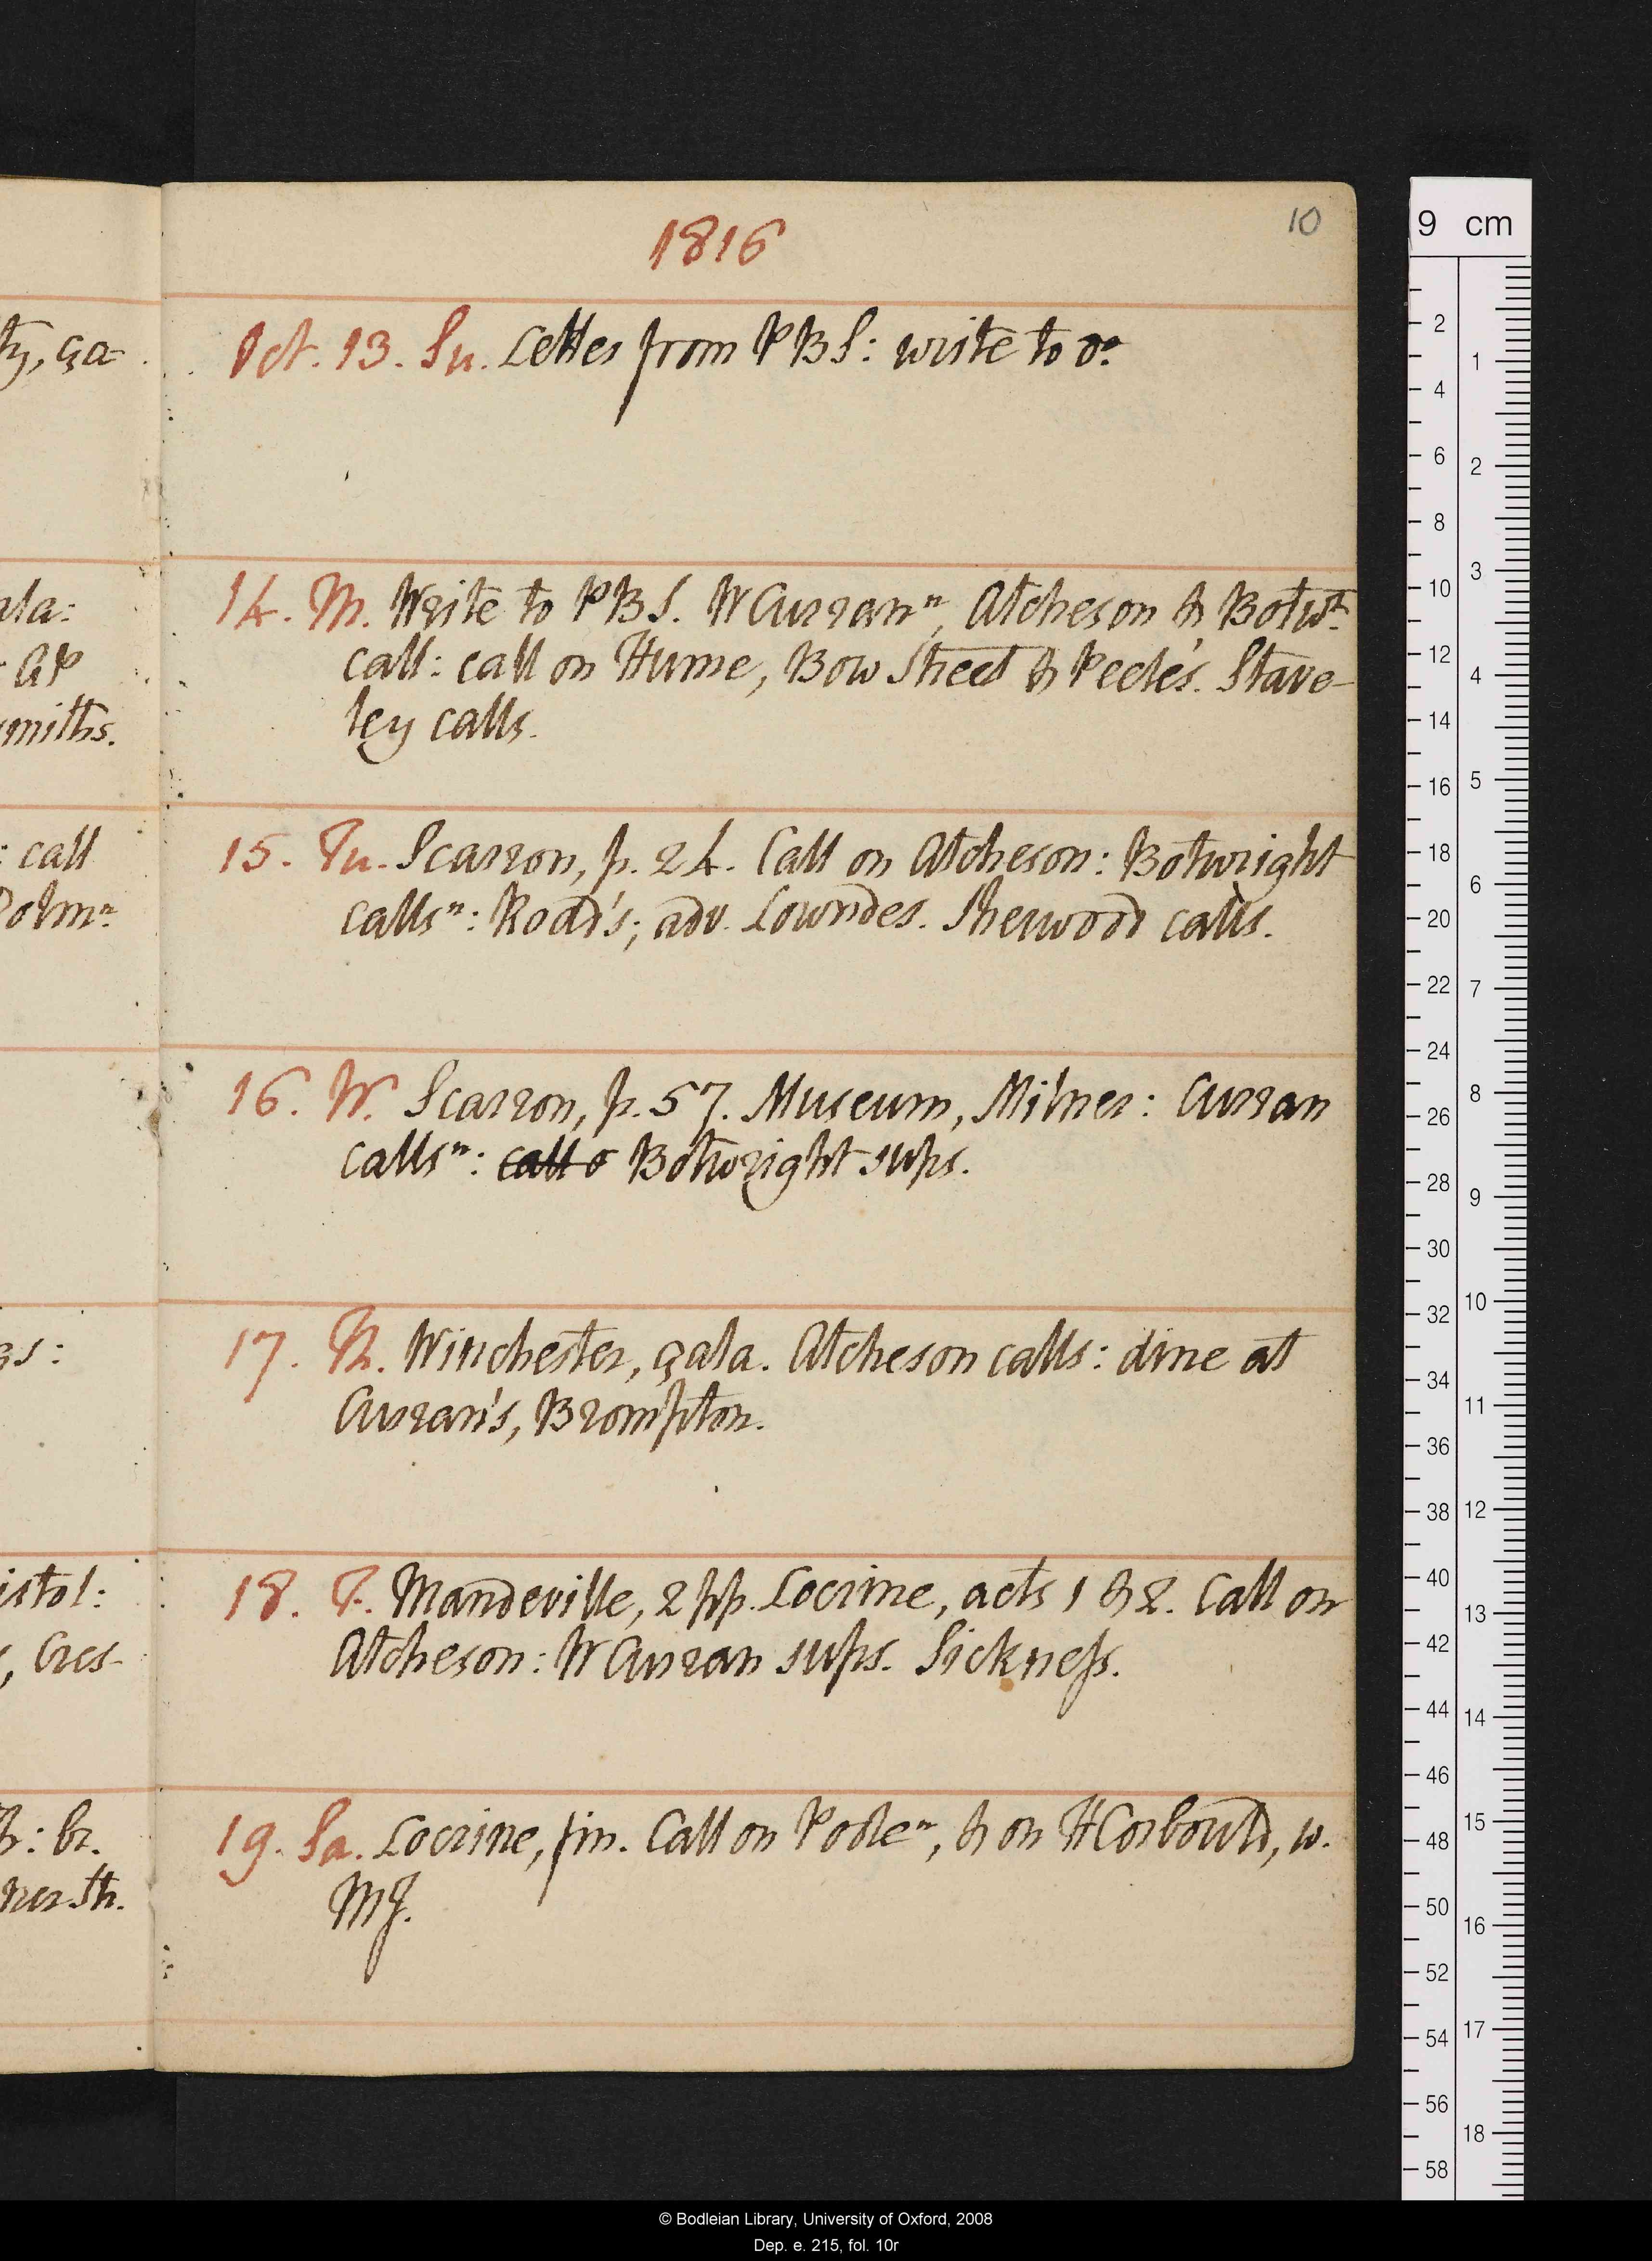 10
1816
Oct. 13. Su. Letter from PBS: write to dº.
14. M. Write to PBS. W Curranⁿ, Atcheson & Botwt.
call: call on Hume, Bow Street & Peele's. Stave-
ley calls.
15. Tu. Scarron, p. 24. Call on Atcheson: Botwright
callsⁿ: Road's; adv. Lowndes. Sherwood calls.
16. W. Scarron, p. 57. Museum, Milner: Curran
callsⁿ: call o Botwright sups.
17. Th. Winchester, çala. Atcheson calls: dine at
Curran's, Brompton.
18. F. Mandeville, 2 pp. Locrine, acts 1 & 2. Call on
Atcheson: W Curran sups. Sickness.
19. Sa. Locrine, fin. Call on Pooleⁿ, & on H Corbould, w.
MJ.
ty, ça-
ala:
AP
smiths.
: call
Dolmⁿ
gs:
istol:
, Cres-
h: br.
ner th.
9 cm
2
4
6
8
10
12
14
16
18
20
22
24
26
28
30
32
34
36
38
40
42
44
46
48
50
52
54
56
58
1
2
3
4
5
6
7
8
9
10
11
12
13
14
15
16
17
18
© Bodleian Library, University of Oxford, 2008
Dep. e. 215, fol. 10r